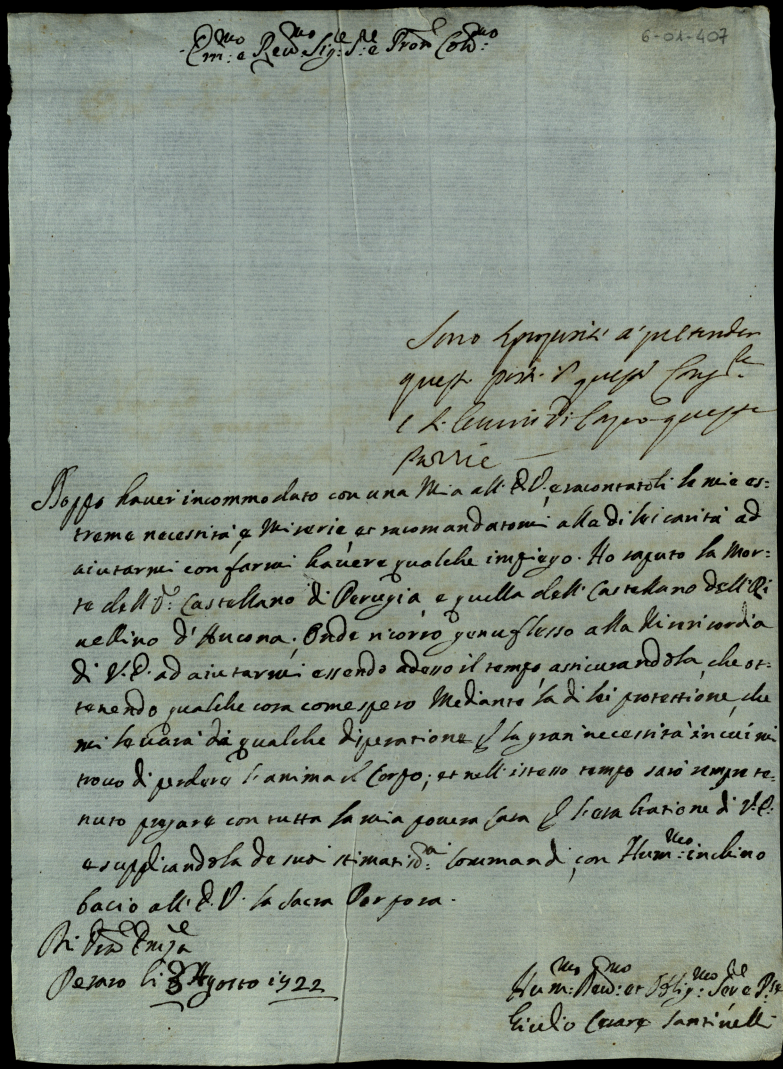 6-01-407
Em:mo e Rev:mo Sig:re S:re e Pron Col:mo
Sono a pretender
quest posti
e di
Patrie
Doppo haver incommodato con una Mia all'E.V. e racontatoli le mie es=
treme necessità e Miserie et racomandatomi alla di lei carità ad
aiutarmi con farmi havere qualche impiego. Ho saputo la Mor=
te dell Castellano di Perugia, e quella dell Castellano dell Ri
vellino d'Ancona; Onde ricorro genuflesso alla Misericordia
di V.E. ad aiutarmi essendo adesso il tempo, assicurandola, che ot=
tenendo qualche cosa come spero Mediante la di lei protettione, che
mi levarà da qualche disperatione p la gran necessità in cui mi
trovo di perdere l'anima e l Corpo; et nell'istesso tempo sarò sempre te=
nuto pregare con tutta la mia povera Casa p l'esaltatione di V.E.
e supplicandola de suoi stimatis:mi Commandi, con Hum:mo inchino
bacio all'E.V. la Sacra Porpora.
Di Vra Emza
Pesaro li 8 Agosto 1722
Hum:mo Dev:mo et Oblig:mo Ser:e
Giulio Cesare Santinelli